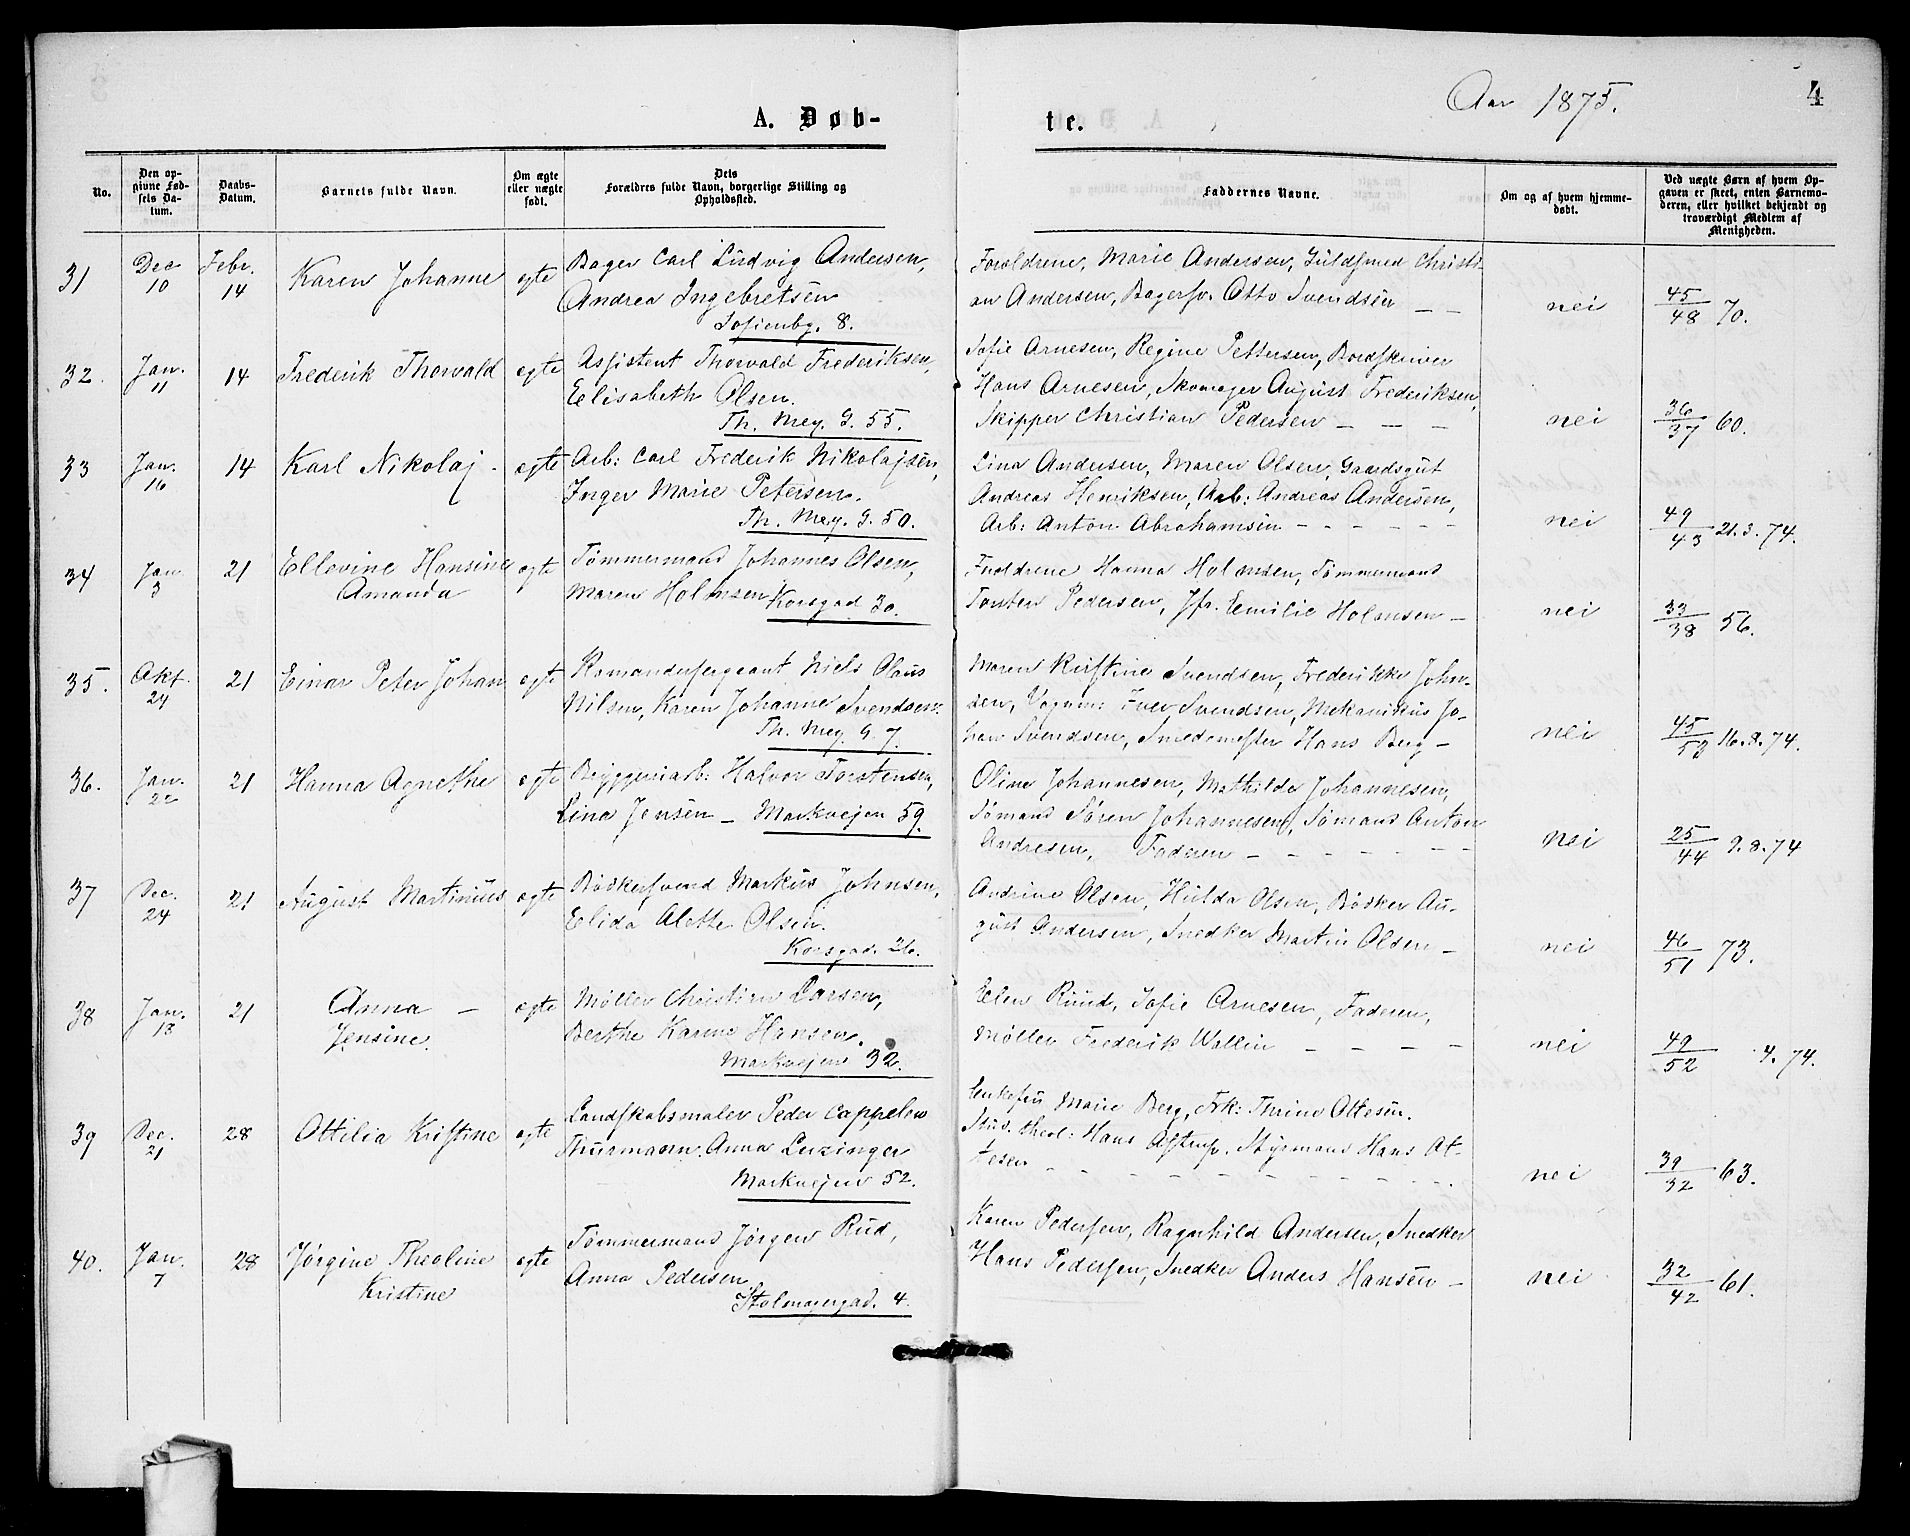 Aar 1875.
4
A. Døb-
te.
No.
Den op-
givne Fød-
sels Da-
tum.
Daabs-
Datum.
Barnets fulde Navn.
Om ægte
eller uægte
født.
Dets
Forældres fulde Navn, borgerlige Stilling og
Opholdssted.
Faddernes Navne.
Om og af hvem hjemme-
døbt.
Ved uægte Børn af hvem Op-
gaven er skeet, enten Barnemo-
deren, eller hvilket bekjendt og
troværdigt Medlem af
Menigheden.
31 Dec 10 Febr. 14 Karen Johanne egte
Bager Carl Ludvig Andersen,
Andrea Ingebretsen
Sofienbg. 8.
Forældrene, Marie Andersen, Guldsmed Christi-
an Andersen, Bagersv. Otto Svendsen – –
nei 45/48 70.
32. Jan. 11 14 Frederik Thorvald egte
Assistent Thorvald Frederiksen,
Elisabeth Olsen.
Th. Mey. G. 55.
Sofie Arnesen, Regine Pettersen, Bordskriver
Hans Arnesen, Skomager August Frederiksen,
Skipper Christian Pedersen – – –
nei 36/37 60.
33 Jan. 16 14 Karl Nikolaj. egte
Arb: Carl Frederik Nikolajsen,
Inger Marie Petersen.
Th. Mey. G. 50.
Lina Andersen, Maren Olsen, Gaardsgut
Andreas Henriksen, Arb: Andreas Andersen,
Arb: Anton Abrahamsen – – – – – –
nei 49/43 21.3.74.
34 Jan. 3 21 Ellevine Hansine
Amanda
egte
Tømmermand Johannes Olsen,
Maren Holmsen Korsgad 30.
Forældrene Hanna Holmsen, Tømmermand
Torsten Pedersen, Jfr. Emilie Holmsen –
nei 33/38 56.
35. Okt. 24 21 Einar Peter Johan egte
Komandersergeant Niels Olaus
Nilsen, Karen Johanne Svendsen.
Th. Mey. G. 7.
Maren Kirstine Svendsen, Frederikke John-
sen, Vognm: Iver Svendsen, Mekanikus Jo-
han Svendsen, Smedemester Hans Berg –
nei 45/52 16.8.74.
36. Jan. 22 21 Hanna Agnethe egte
Bryggeriarb: Halvor Torstensen,
Lina Jensen – Markvejen 59.
Oline Johannesen, Mathilde Johannesen,
Sømand Søren Johannesen, Sømand Anton
Andresen, Faderen – – – – – – –
nei 25/44 9.8.74
37 Dec. 24 21 August Martinius egte
Bødkersvend Markus Johnsen,
Elida Alette Olsen.
Korsgad. 26.
Andrine Olsen, Hulda Olsen, Bødker Au-
gust Andersen, Snedker Martin Olsen –
nei 46/51 73.
38 Jan. 18 21 Anna –
Jensine.
egte
Møller Christian Larsen,
Berthe Karine Hansen.
Markvejen 32.
Elen Ruud, Sofie Arnesen, Faderen,
Møller Frederik Wallin – – – –
nei 49/52 4.74.
39 Dec. 21 28 Ottilia Kristine egte
Landskabsmaler Peder Cappelen
Thurmann. Anna Luzinger
Markvejen 52.
Enkefru Marie Berg, Frk: Thrine Ottesen.
Stud. theol: Hans Astrup. Styrmand Hans Ot-
tesen – – – – – – – – – –
nei 39/32 63.
40. Jan. 7 28 Jørgine Theoline
Kristine
egte
Tømmermand Jørgen Rud,
Anna Pedersen
Stolmagergad. 4.
Karen Pedersen, Ragnhild Andersen, Snedker
Hans Pedersen, Snedker Anders Hansen –
nei 32/42 61.